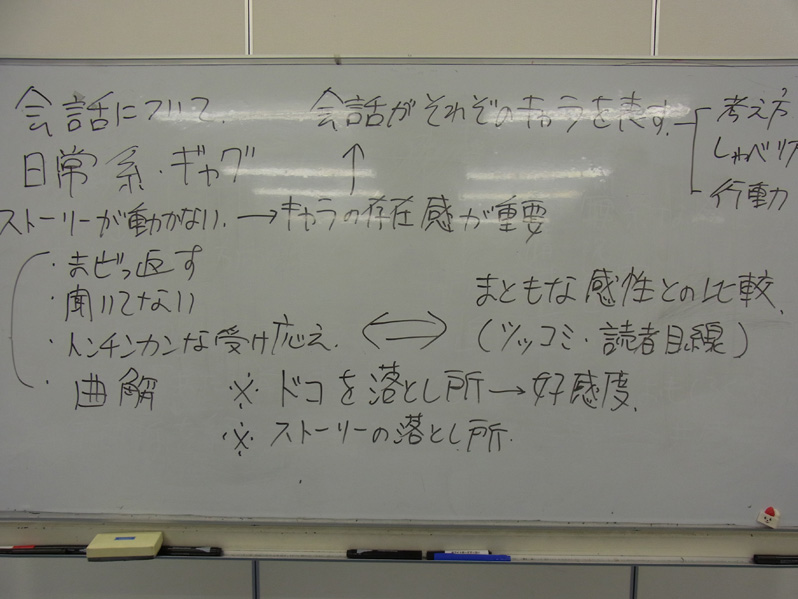 会話について.
会話がそれぞのキャラを表す.
考え方
しゃべり方
行動力
日常系・ギャグ
↑
ストーリーが動かない.→キャラの存在感が重要
・まぜっ返す
・聞いてない
・トンチンカンな受け応え.
・曲解
⇔
まともな感性との比較.
(ツッコミ・読者目線)
※ ドコを落とし所→好感度.
※ ストーリーの落とし所.